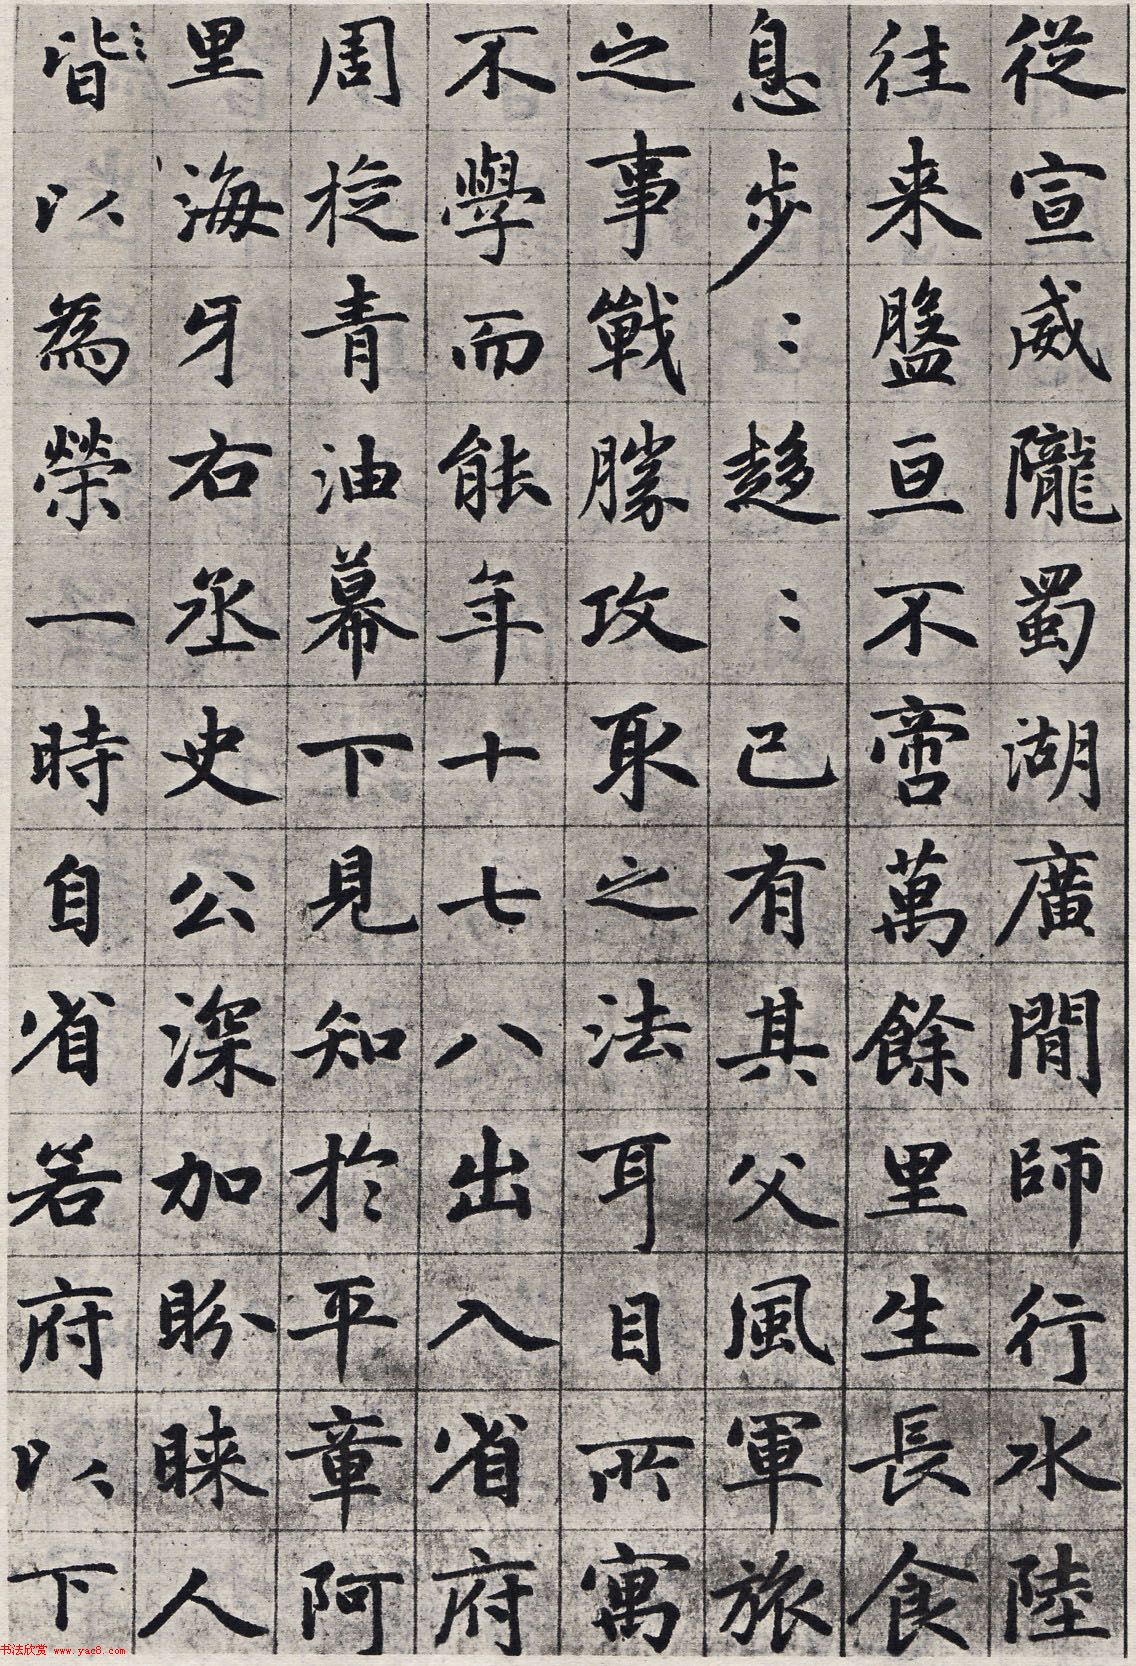 從宣威隴蜀湖廣間師行水陸
往来盤亘不啻萬餘里生長食
息步〻趍〻已有其父風軍旅
之事戰勝攻取之法耳目所寓
不學而能年十七八出入省府
周旋青油幕下見知於平章阿
里海牙右丞史公深加盼睞人
皆以為榮一時自省若府以下
书法欣赏 www.yac8.com